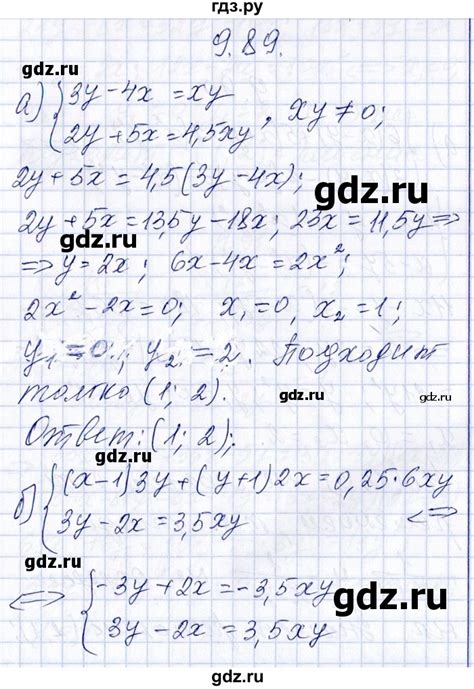 гдз.ру
9.89.
gdz.ru
gdz.ru
а) { 3y-4x = xy
2y+5x=4,5xy , xy≠0;
2y+5x=4,5(3y-4x);
gdz.ru
2y+5x=13,5y-18x; 23x=11,5y⇒
gdz.ru
⇒ y=2x; 6x-4x=2x²;
2x²-2x=0; x₁=0, x₂=1;
y₁=0; y₂=2. Подходит
gdz.ru
только (1; 2).
gdz.ru
Ответ: (1; 2);
gdz.ru
б) { (x-1)3y+(y+1)2x=0,25·6xy
3y-2x=3,5xy ⇔
gdz.ru
gdz.ru
⇔ { -3y+2x=-3,5xy
3y-2x=3,5xy
gdz.ru
gdz.ru
gdz.ru